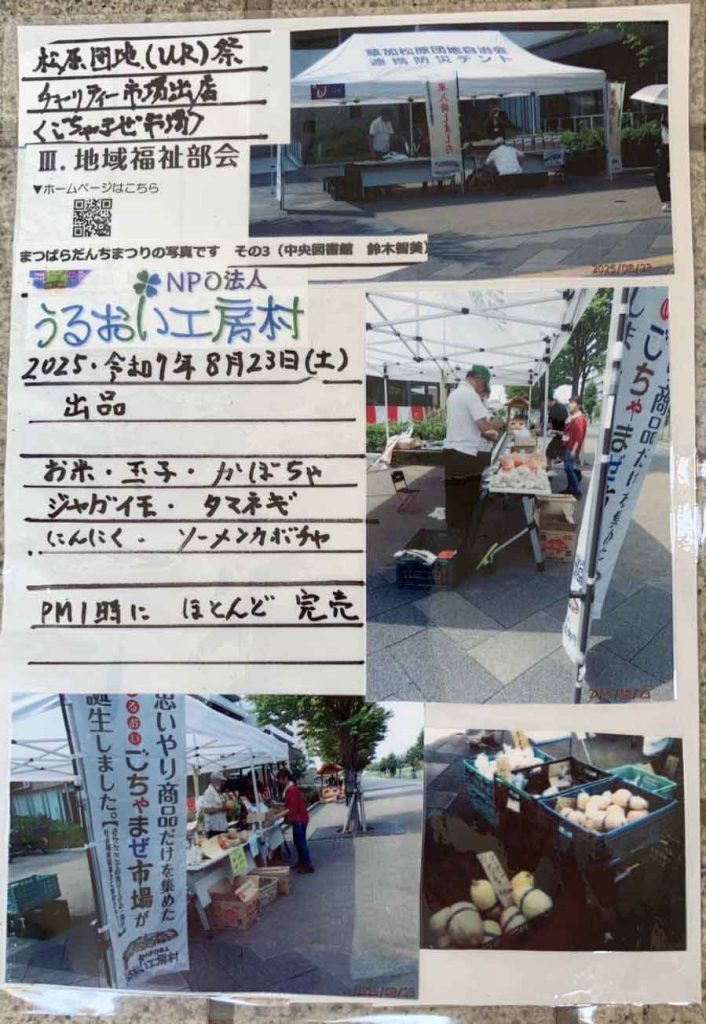 松原団地(UR)祭
チャリティー市場出店
<ごちゃまぜ市場>
Ⅲ. 地域福祉部会
▼ホームページはこちら
草加松原団地自治会
連携防災テント
2025/08/23
まつばらだんちまつりの写真です その3(中央図書館 鈴木智美)
NPO法人
うるおい工房村
2025・令和7年8月23日(土)
出品
お米・玉子・かぼちゃ
ジャガイモ・タマネギ
にんにく・ソーメンカボチャ
PM1時に ほとんど 完売
い商品だけを集めた
ごちゃまぜ
2025/08/23
思いやり商品だけを集めた
うるおい ごちゃまぜ市場が
誕生しました。
NPO法人
うるおい工房村
2025/08/23
2025/08/23